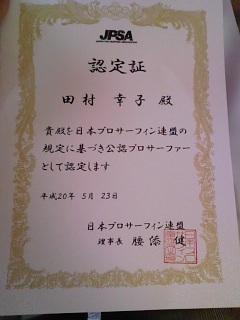 JPSA
認定証
田村 幸子 殿
貴殿を日本プロサーフィン連盟の
規定に基づき公認プロサーファー
として認定します
平成20年 5月 23日
日本プロサーフィン連盟
理事長 腰添 健